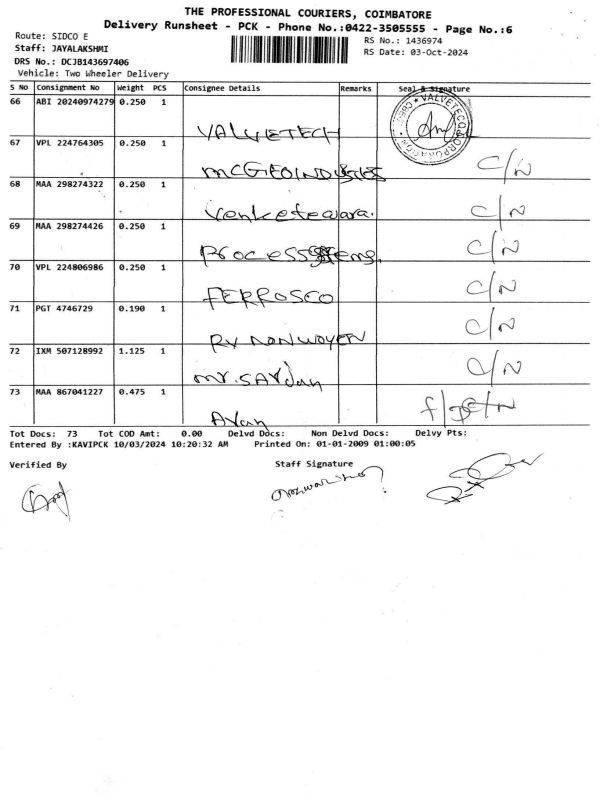 THE PROFESSIONAL COURIERS, COIMBATORE
Delivery Runsheet - PCK - Phone No.:0422-3505555 - Page No.:6
Route: SIDCO E
RS No.: 1436974
Staff: JAYALAKSHMI
RS Date: 03-Oct-2024
DRS No.: DCJB143697406
Vehicle: Two Wheeler Delivery
S No Consignment No Weight PCS Consignee Details Remarks Seal & Signature
66 ABI 20240974279 0.250 1 VALVETECH
VALVETECQ CORPORATION
67 VPL 224764305 0.250 1 C/N
68 MAA 298274322 0.250 1 C/N
69 MAA 298274426 0.250 1 C/N
70 VPL 224806986 0.250 1 FERROSCO C/N
71 PGT 4746729 0.190 1 RV NONWOVEN C/N
72 IXM 507128992 1.125 1 C/N
73 MAA 867041227 0.475 1
Tot Docs: 73 Tot COD Amt: 0.00 Delvd Docs: Non Delvd Docs: Delvy Pts:
Entered By :KAVIPCK 10/03/2024 10:20:32 AM Printed On: 01-01-2009 01:00:05
Verified By Staff Signature